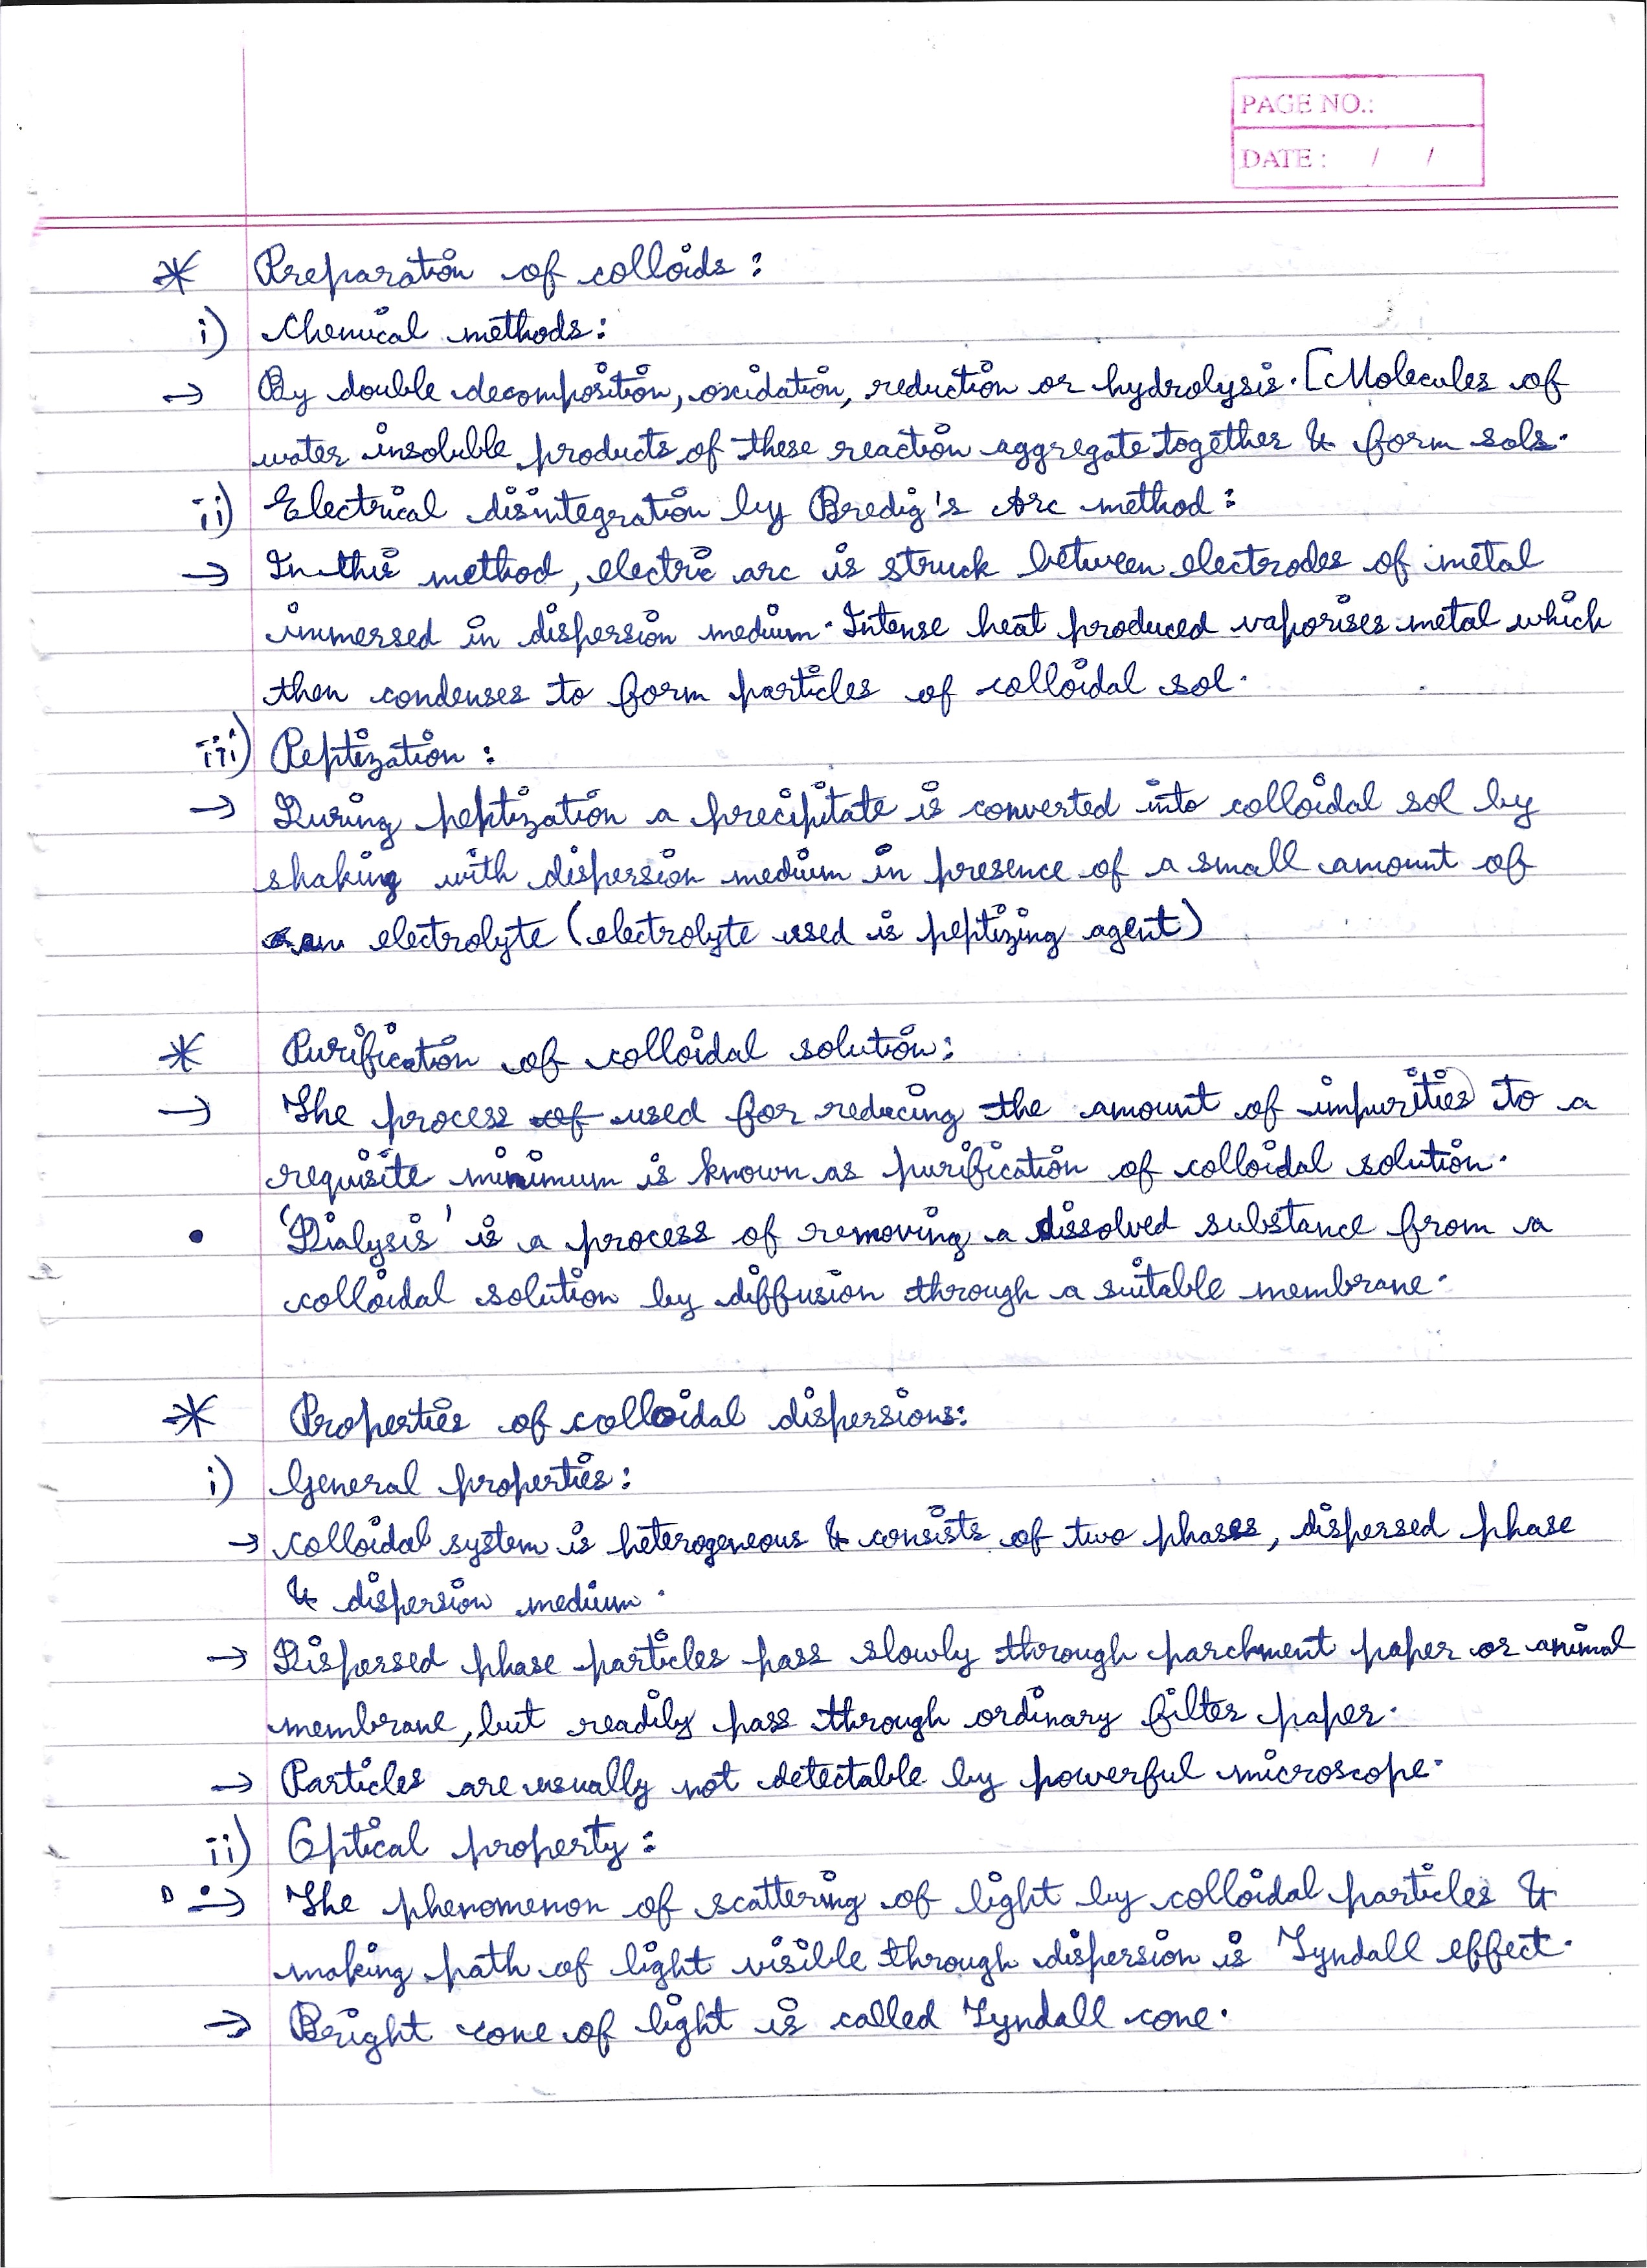 PAGE NO.:
DATE : / /
* Preparation of colloids :
i) Chemical methods :
→ By double decomposition, oxidation, reduction or hydrolysis. [Molecules of
water insoluble products of these reaction aggregate together & form sols.
ii) Electrical disintegration by Bredig's Arc method :
→ In this method, electric arc is struck between electrodes of metal
immersed in dispersion medium. Intense heat produced vaporises metal which
then condenses to form particles of colloidal sol.
iii) Peptization :
→ During peptization a precipitate is converted into colloidal sol by
shaking with dispersion medium in presence of a small amount of
an electrolyte (electrolyte used is peptizing agent)
* Purification of colloidal solution :
→ The process of used for reducing the amount of impurities to a
requisite minimum is known as purification of colloidal solution.
• 'Dialysis' is a process of removing a dissolved substance from a
colloidal solution by diffusion through a suitable membrane.
* Properties of colloidal dispersions :
i) General properties :
→ Colloidal system is heterogeneous & consists of two phases, dispersed phase
& dispersion medium.
→ Dispersed phase particles pass slowly through parchment paper or animal
membrane, but readily pass through ordinary filter paper.
→ Particles are usually not detectable by powerful microscope.
ii) Optical property :
→ The phenomenon of scattering of light by colloidal particles &
making path of light visible through dispersion is Tyndall effect.
→ Bright cone of light is called Tyndall cone.